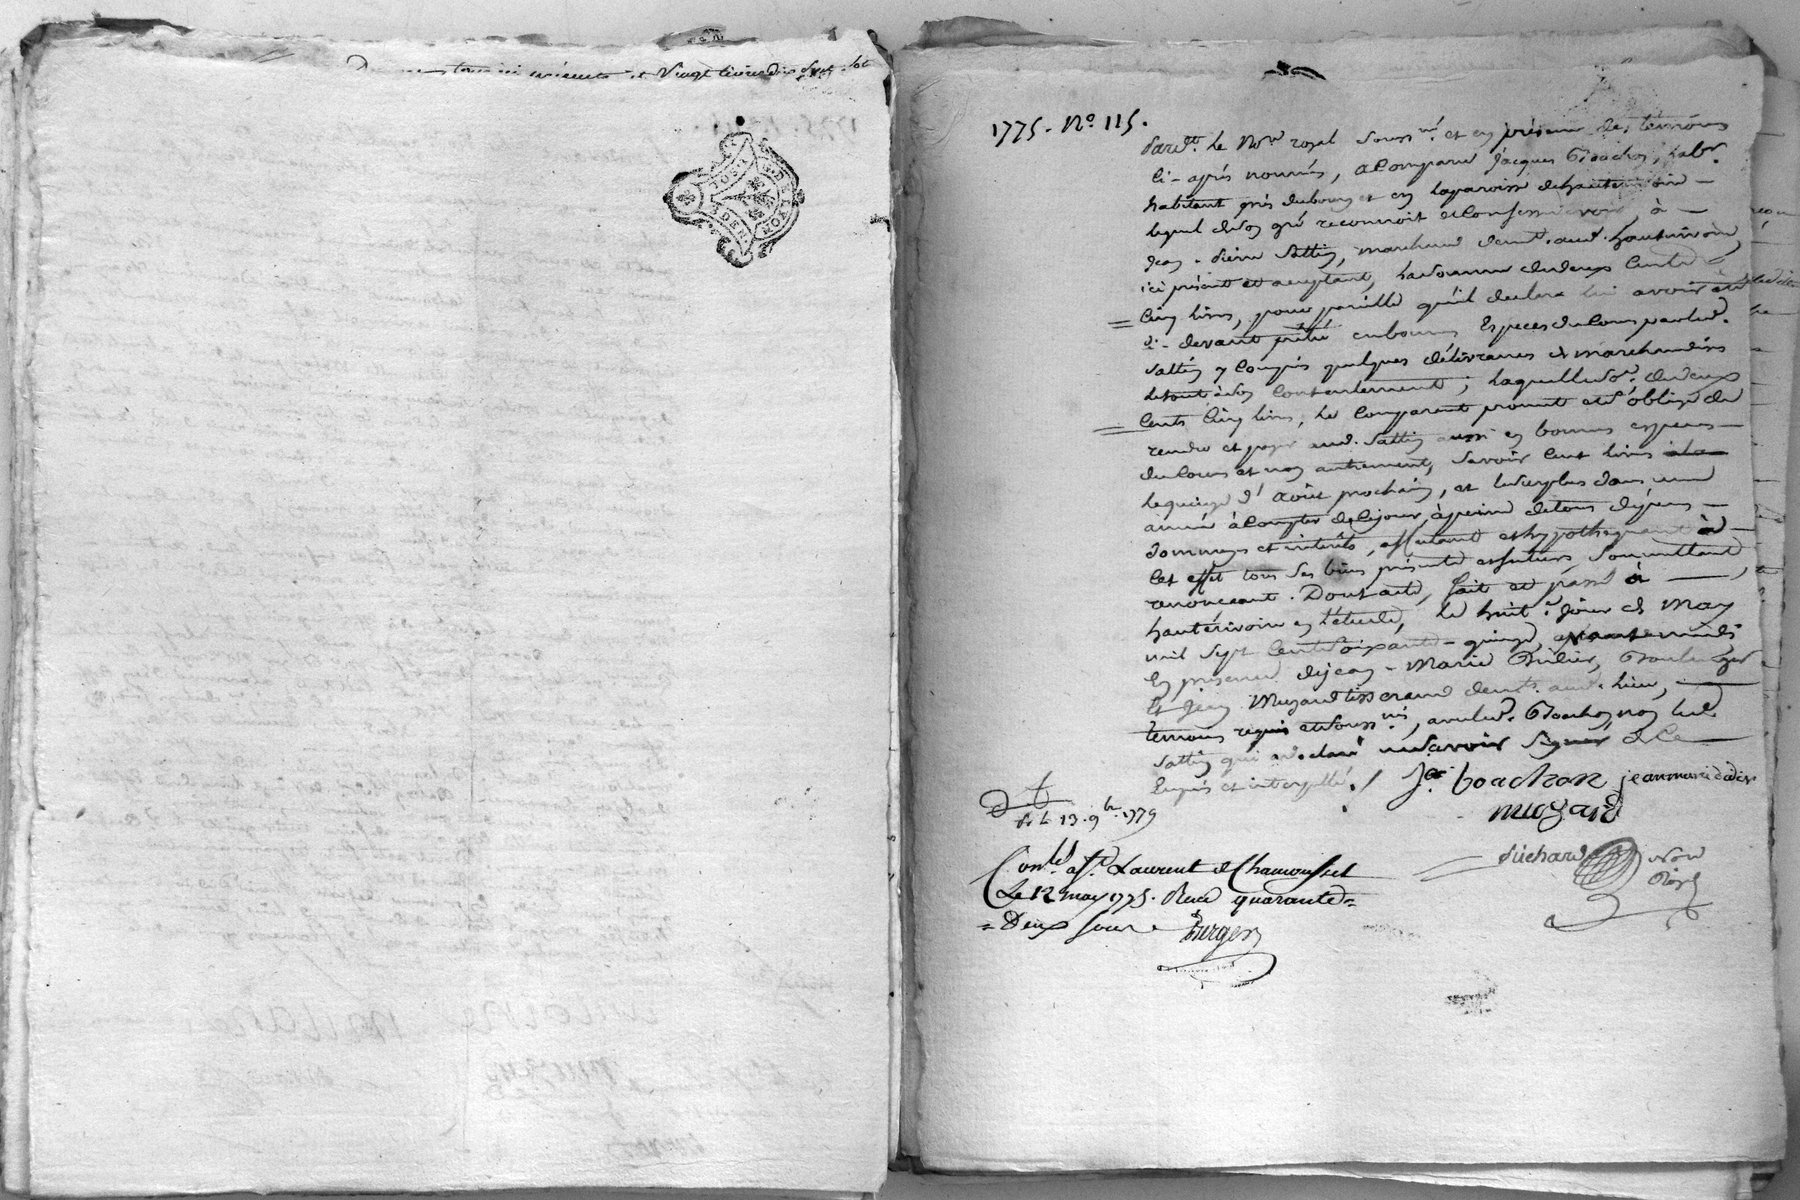 et vingt
1775. No. 115.
Pardt. le Nore. royal souss.né et en présence des témoins
ci-après nommés, a comparu Jacques Boachon, labr.
habitant près du bourg et en la paroisse de hauterivoire
lequel de son gré reconnoit et confesse devoir, à
Jean-Pierre Sattin, marchand demt. aud. hauterivoire,
ici présent et acceptant, la somme de deux cents
cinq livres, pour pareille qu'il declare lui avoir été
ci-devant prêté en bonnes especes du cours par led.
Sattin y compris quelques délivrances de marchandises
le tout à son contentement; laquelle se. de deux
cents cinq livres, le comparant promet et s'oblige de
rendre et payer aud. Sattin aussi en bonnes especes
du cours et non autrement, savoir cent livres
le quinze d'Août prochain, et le surplus dans une
année à compter de ce jour, à peine de tous dépens
dommages et intérêts, affectant et hypothequant à
cet effet tous ses biens présents et futurs soumettant
renonceant. Dont acte, fait et passé à
hauterivoire en l'étude, le huit.e jour de May
mil sept cent soixante-quinze, avant midi
en présence de Jean-Marie Didier, Boulanger
et Jean Muzard tisserand demts. aud. lieu,
témoins requis et souss.nés, avec led. Boachon, non led.
Sattin qui a déclaré ne savoir signer de ce
enquis et interpellé. /
Jes. boachon jean marie didier
muzard
Dt
de L 13. 9bre. 1779
Richard Nore
Royal
Conlé. à St. Laurent de Chamousset
Le 12 may 1775. Recu quarante=
=Deux sous